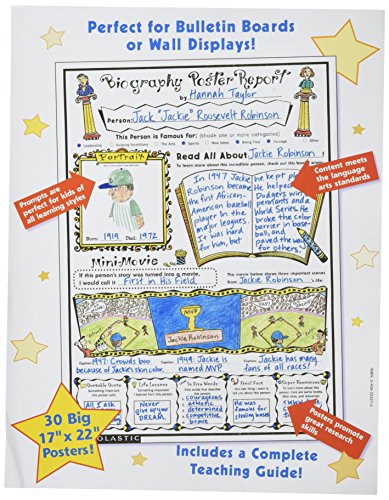 Perfect for Bulletin Boards
or Wall Displays!
Biography Poster Report
by Hannah Taylor
Person: Jack "Jackie" Roosevelt Robinson
This Person is Famous for: (shade one or more categories)
Leadership Science/Inventions The Arts Sports New Ideas Being First Courage Other
Portrait
Born: 1919 Died: 1972
Read All About Jackie Robinson!
To learn more about this incredible person, read this book
In 1947 Jackie
Robinson became
the first African-
American baseball
player in the
major leagues.
It was hard
for him, but
he kept
He helped
Dodgers win
pennants and a
World Series. He
broke the color
barrier in base-
ball, and
paved the way
for others.
Prompts are
perfect for kids of
all learning styles
Content meets
the language
arts standards
Mini-Movie
If this person's story was turned into a movie,
I would call it First in His Field
The movie below shows three important scenes
from Jackie Robinson's life.
MVP
Jackie Robinson
Caption: 1947: Crowds boo
because of Jackie's skin color.
Caption: 1949: Jackie is
named MVP.
Caption: Jackie has many
fans of all races!
Quotable Quote
Life Lessons
In Few Words
Final Fact
All I ask
Never
give up your
DREAM.
courageous
athletic
determined
competitive
brave
He was
famous for
stealing bases
30 Big
17" x 22"
Posters!
SCHOLASTIC
Posters promote
great research
skills
Includes a Complete
Teaching Guide!